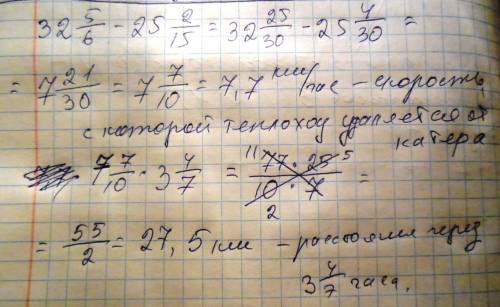 32 5/6 - 25 2/15 = 32 25/30 - 25 4/30 =
= 7 21/30 = 7 7/10 = 7,7 км/час - скорость,
с которой теплоход удаляется от
катера
7 7/10 · 3 4/7 = 11 77 · 25 5 / 10 · 7 2 =
= 55/2 = 27,5 км - расстояние через
3 4/7 часа.